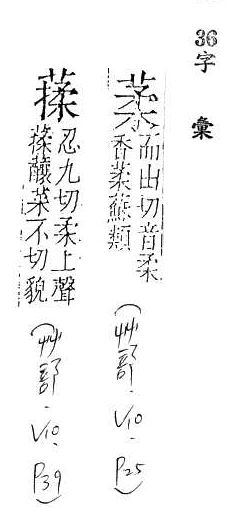 36字彙
葇 而由切音柔
香葇蘇類
(艸部.V10.P25)
蓚 忍九切柔上聲
蓚釀菜不切貌
(艸部.V10.P39)